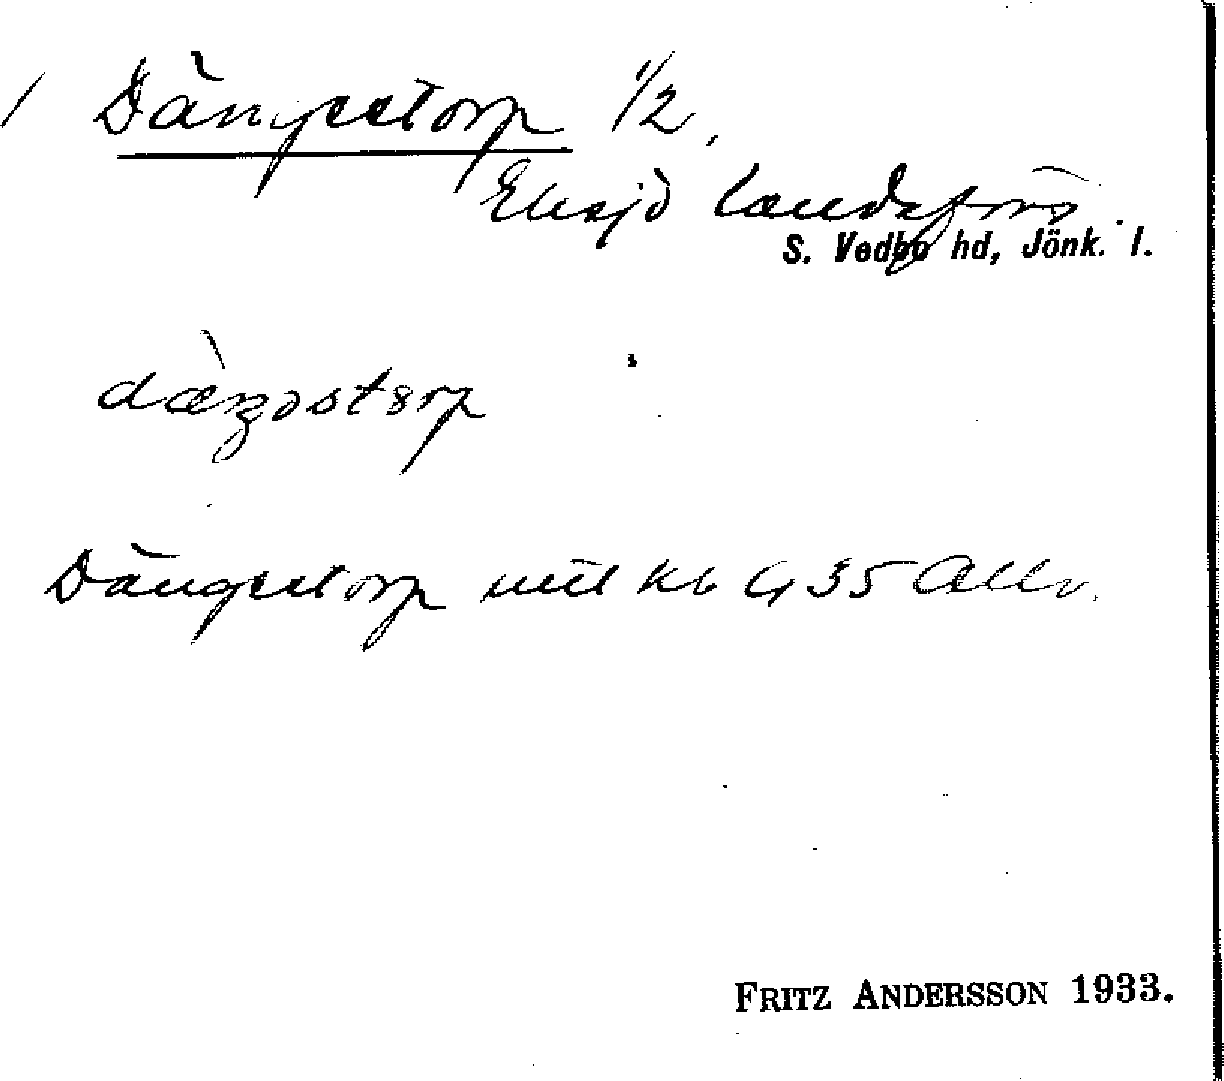 / Dängestorp 1/2.
Eksjö landsförs.
S. Vedbo hd, Jönk. l.
dæŋəstɔrp
Dängestorp mtl kb G 35 Allm.
FRITZ ANDERSSON 1933.